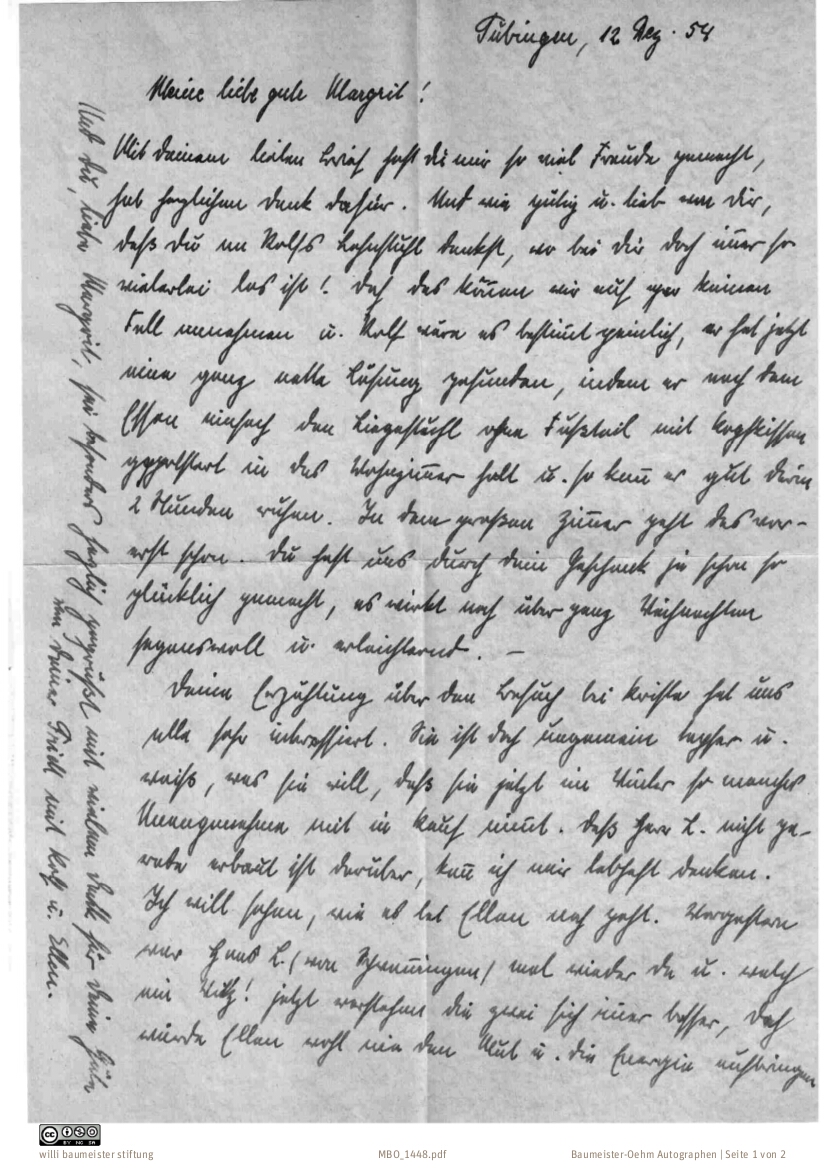 Tübingen, 12 Dez. 54
Meine liebe gute Margrit!
Mit Deinem lieben Brief hast Du mir so viel Freude gemacht,
hab herzlichen Dank dafür. Und wie gütig u. lieb von Dir,
daß Du an Rolfs Lehnstuhl denkst, wo bei Dir doch im̅er so
vielerlei los ist! Doch das kön̅en wir auf gar keinen
Fall annehmen u. Rolf wäre es bestim̅t peinlich, er hat jetzt
eine ganz nette Lösung gefunden, indem er nach dem
Essen einfach den Liegestuhl ohne Fußteil mit Kopfkissen
gepolstert in das Wohnzim̅er holt u. so kan̅ er gut darin
2 Stunden ruhen. In dem großen Zim̅er geht das vor-
erst schon. Du hast uns durch Dein Geschenk ja schon so
glücklich gemacht, es wirkt noch über ganz Weihnachten
segensvoll u. erleichternd. –
Deine Erzählung über den Besuch bei Krista hat uns
alle sehr interessiert. Sie ist doch ungemein tapfer u.
weiß, was sie will, daß sie jetzt im Winter so manches
Unangenehme mit in Kauf nim̅t. Daß Herr L. nicht ge-
rade erbaut ist darüber, kan̅ ich mir lebhaft denken.
Ich will sehen, wie es bei Ellen noch geht. Vorgestern
war Hans L. (von Schwenningen) mal wieder da u. welch
ein Witz! jetzt verstehen die zwei sich im̅er besser, doch
würde Ellen wohl nie den Mut u. die Energie aufbringen
Und Du, liebe Margrit, sei besonders herzlich gegrüßt mit vielem Dank für Deine Güte
von Deiner Friedl mit Rolf u. Ellen.
willi baumeister stiftung
MBO_1448.pdf
Baumeister-Oehm Autographen | Seite 1 von 2